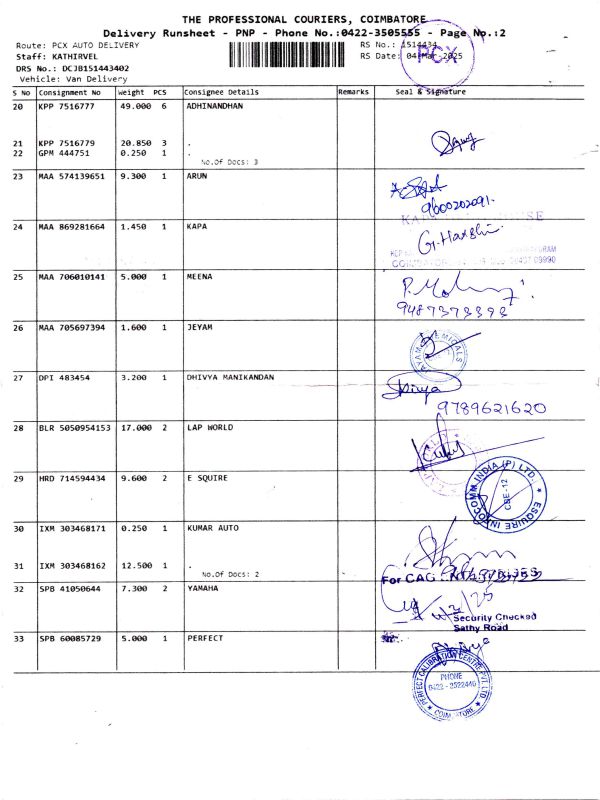 THE PROFESSIONAL COURIERS, COIMBATORE
Delivery Runsheet - PNP - Phone No.:0422-3505555 - Page No.:2
Route: PCX AUTO DELIVERY
RS No.: 1514434
Staff: KATHIRVEL
RS Date: 04-Mar-2025
PCX
DRS No.: DCJB151443402
Vehicle: Van Delivery
S No Consignment No Weight PCS Consignee Details Remarks Seal & Signature
20 KPP 7516777 49.000 6 ADHINANDHAN
21 KPP 7516779 20.850 3 .
22 GPM 444751 0.250 1 .
No.Of Docs: 3
23 MAA 574139651 9.300 1 ARUN
9600202091.
24 MAA 869281664 1.450 1 KAPA
G. Harshi
25 MAA 706010141 5.000 1 MEENA
26 MAA 705697394 1.600 1 JEYAM
27 DPI 483454 3.200 1 DHIVYA MANIKANDAN
Divya
9789621620
28 BLR 5050954153 17.000 2 LAP WORLD
29 HRD 714594434 9.600 2 E SQUIRE
ESQUIRE INFOCOMM INDIA (P) LTD.
CBE-12
30 IXM 303468171 0.250 1 KUMAR AUTO
31 IXM 303468162 12.500 1 .
No.Of Docs: 2
For CAG
32 SPB 41050644 7.300 2 YAMAHA
Security Checked
Sathy Road
33 SPB 60085729 5.000 1 PERFECT
PERFECT CALIBRATION CENTRE PVT. LTD
PHONE
0422 - 3522446
COIMBATORE